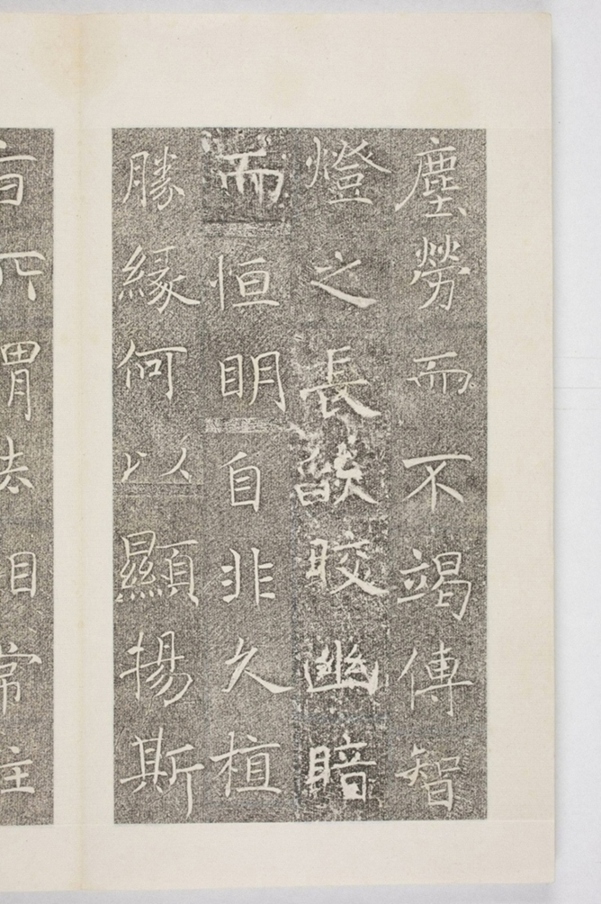 塵勞而不竭傳智
燈之長燄晈幽暗
而恒眀自非久植
勝緣何以顯揚斯
旨所謂法相常住